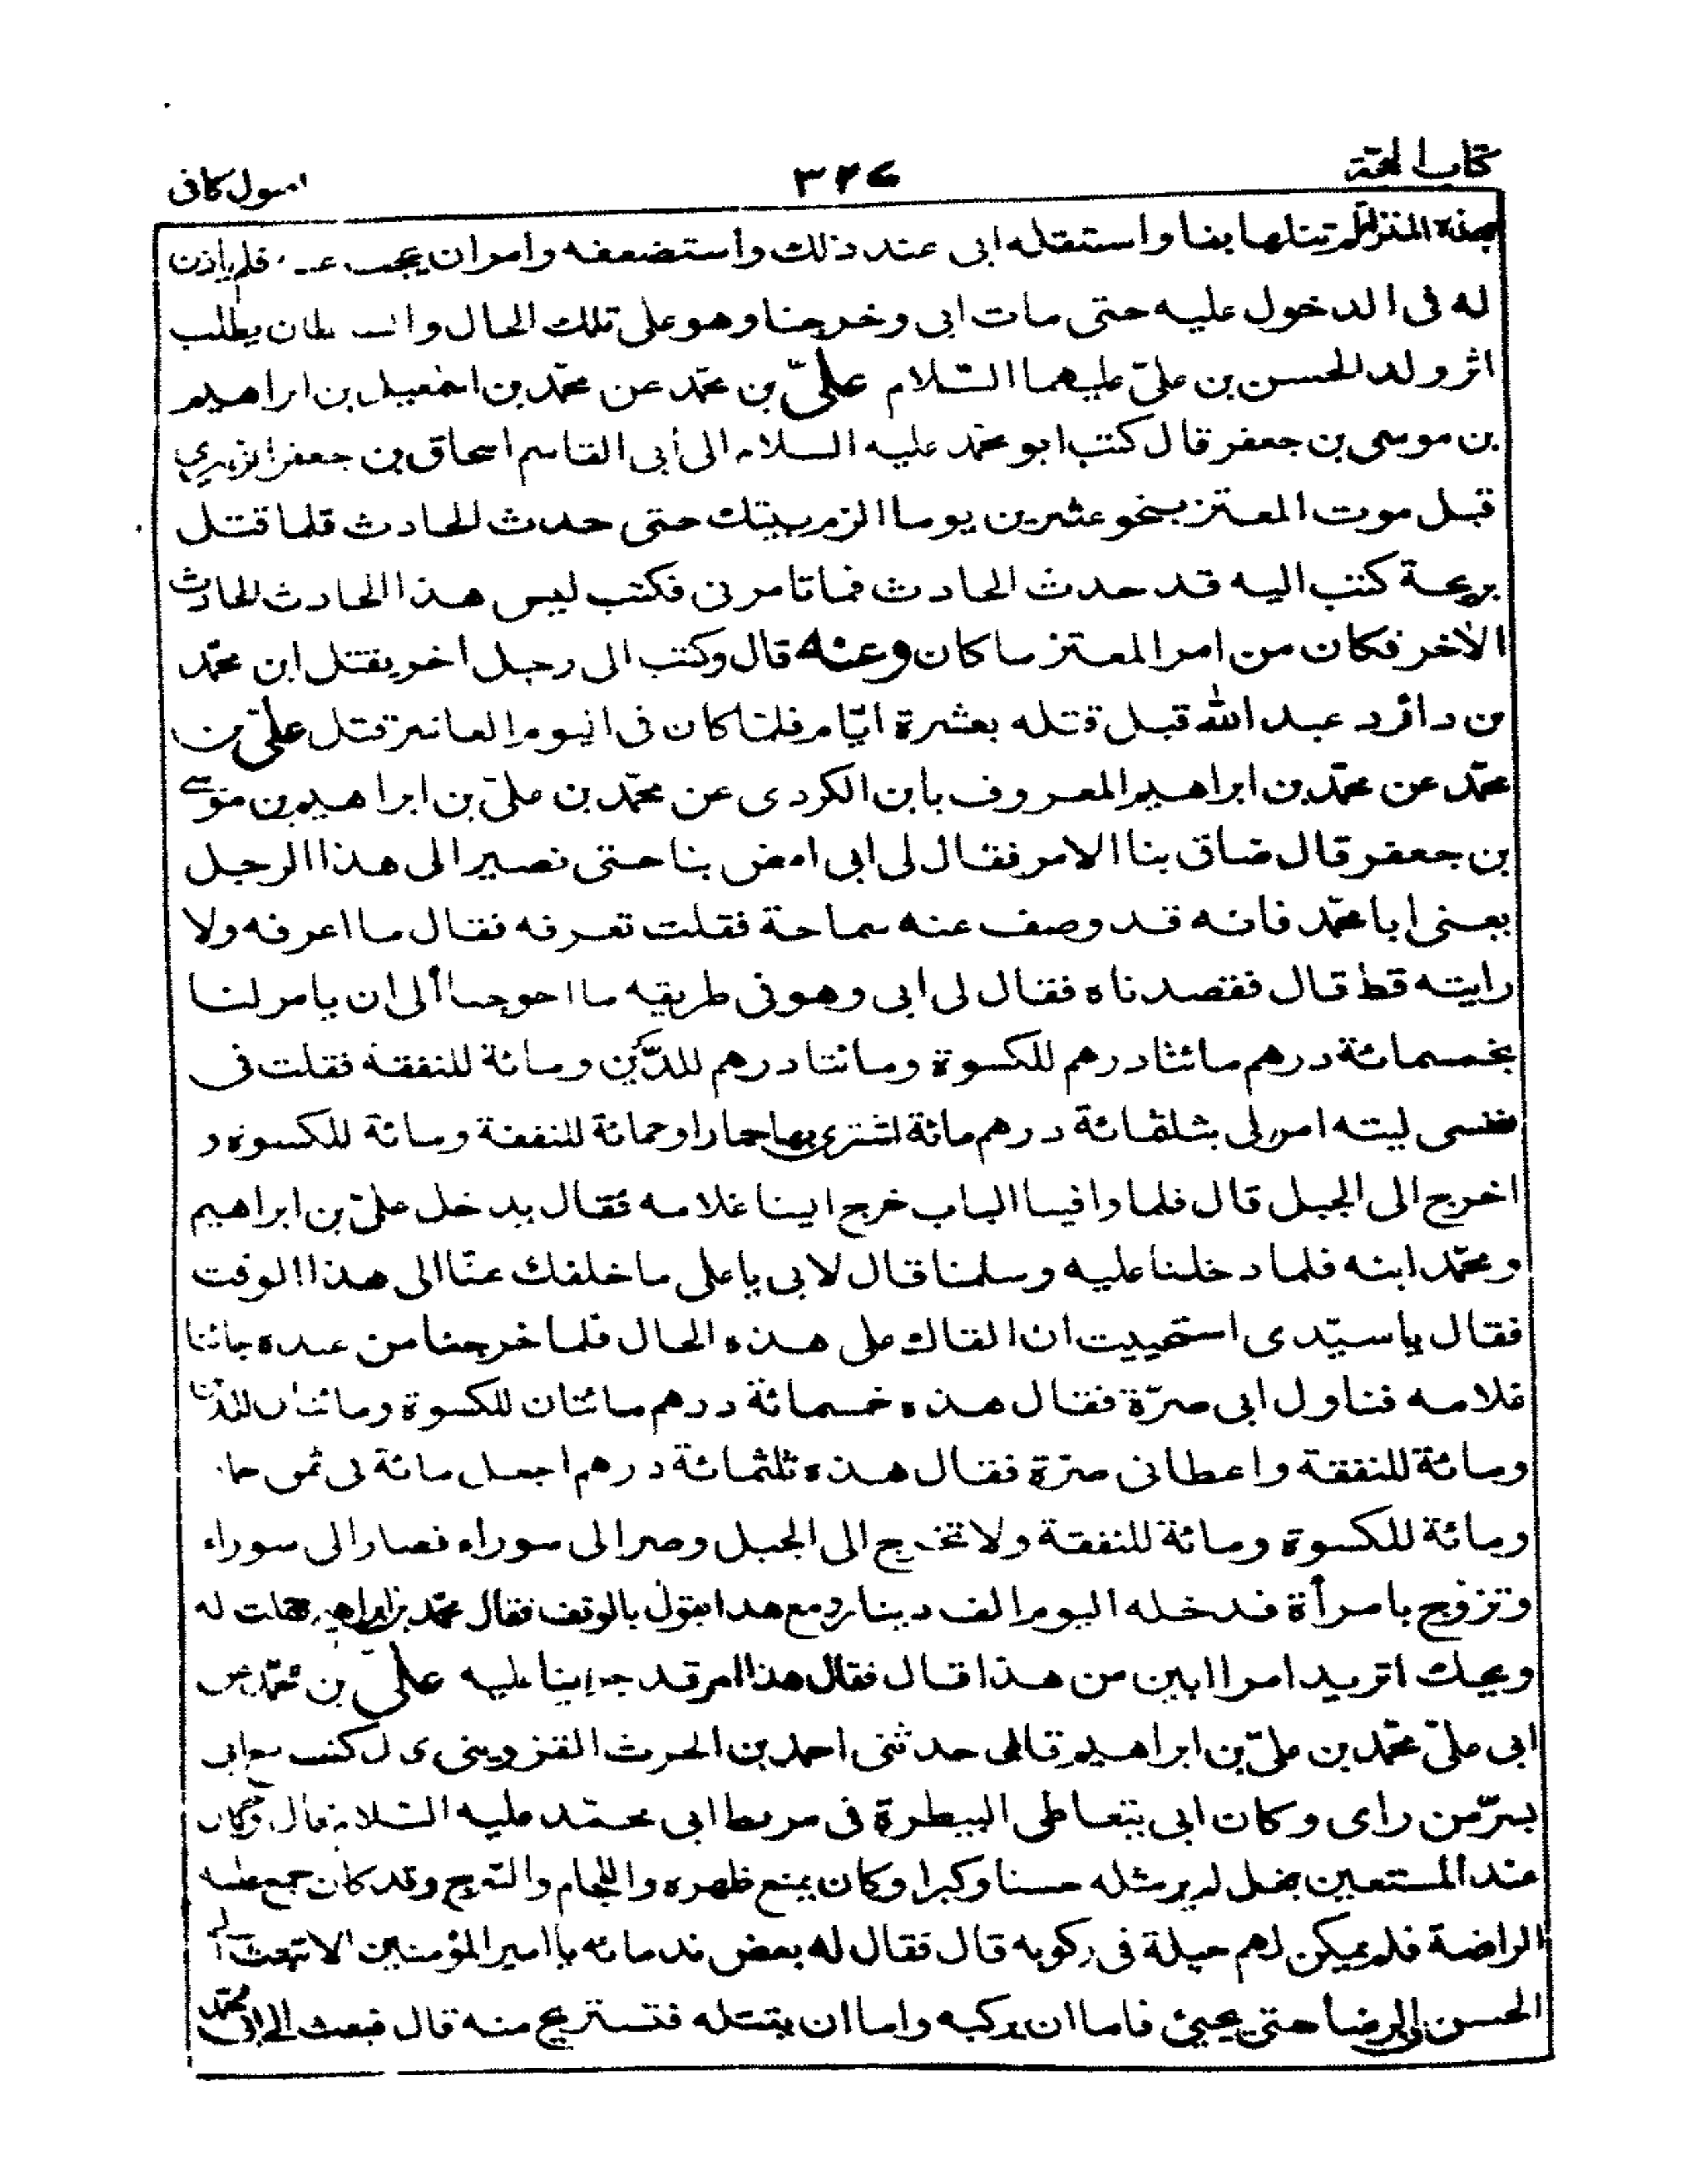 كتاب الحجة
٣٢٤
اصول كافى
بهذه المنزلة لم تنلها بنا واستقله ابى عند ذلك واستضعفه وامر ان يحجب عنه فلم ياذن
له فى الدخول عليه حتى مات ابى وخرجنا وهو على تلك الحال والسلطان يطلب
اثر ولد الحسن بن علىّ عليهما السّلام علىّ بن محمّد عن محمّد بن اسمعيل بن ابراهيم
بن موسى بن جعفر قال كتب ابو محمّد عليه السلام الى أبى القاسم اسحاق بن جعفر الزبيري
قبل موت المعتز بنحو عشرين يوما الزم بيتك حتى حدث الحادث فلما قتل
بريحة كتب اليه قد حدث الحادث فما تامرنى فكتب ليس هذا الحادث الحادث
الأخر فكان من امر المعتز ما كان وعنه قال وكتب الى رجل اخر يقتل ابن محمّد
بن داؤد عبد الله قبل قتله بعشرة ايّام فلمّا كان فى اليوم العاشر قتل علىّ بن
محمّد عن محمّد بن ابراهيم المعروف بابن الكردى عن محمّد بن علىّ بن ابراهيم بن موسى
بن جعفر قال ضاق بنا الامر فقال لى ابى امض بنا حتى نصير الى هذا الرجل
يعنى ابا محمّد فانه قد وصف عنه سماحة فقلت تعرفه فقال ما اعرفه ولا
رايته قط قال فقصدناه فقال لى ابى وهو فى طريقه ما احوجنا ألى ان يامر لنا
بخمسمائة درهم مائتا درهم للكسوة ومائتا درهم للدّين ومائة للنفقة فقلت فى
نفسى ليته امر لى بثلثمائة درهم مائة اشترى بها حمارا ومائة للنفقة ومائة للكسوة و
اخرج الى الجبل قال فلما وافينا الباب خرج الينا غلامه فقال يدخل علىّ بن ابراهيم
ومحمّد ابنه فلما دخلنا عليه وسلمنا قال لابى يا على ما خلفك عنّا الى هذا الوقت
فقال يا سيّدى استحييت ان القاك على هذه الحال فلما خرجنا من عنده جائنا
غلامه فناول ابى صرّة فقال هذه خمسمائة درهم مائتان للكسوة ومائتان للدّين
ومائة للنفقة واعطانى صرّة فقال هذه ثلثمائة درهم اجعل مائة فى ثمن حمار
ومائة للكسوة ومائة للنفقة ولا تخرج الى الجبل وصر الى سوراء فصار الى سوراء
وتزوج بامرأة فدخله اليوم الف دينار ومع هذا يقول بالوقف فقال محمّد بن ابراهيم فقلت له
ويحك اتريد امرا ابين من هذا قال فقال هذا امر قد جرينا عليه علىّ بن محمّد عن
ابى علىّ محمّد بن علىّ بن ابراهيم قال حدثنى احمد بن الحرث القزوينى قال كنت مع ابى
بسرّمن راى وكان ابى يتعاطى البيطرة فى مربط ابى محمّد عليه السّلام قال وكان
عند المستعين بغل لم ير مثله حسنا وكبرا وكان يمنع ظهره واللجام والسّرج وقد كان جمع عليه
الراضة فلم يمكن لهم حيلة فى ركوبه قال فقال له بعض ندمائه يا امير المؤمنين الا تبعث الى
الحسن ابن الرضا حتى يجيئ فاما ان يركبه واما ان يقتله فتستريح منه قال فبعث الى ابى محمّد